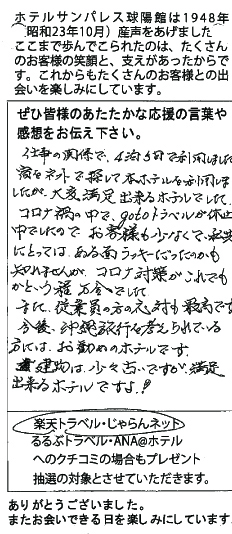 ホテルサンパレス球陽館は1948年
(昭和23年10月）産声をあげました
ここまで歩んでこられたのは、たくさん
のお客様の笑顔と、支えがあったからで
す。これからもたくさんのお客様との出
会いを楽しみにしています。
ぜひ皆様のあたたかな応援の言葉や
感想をお伝え下さい。
仕事の関係で、4泊5日で利用しました
ネットで探して本ホテルを利用しま
したが、大変満足出来るホテルでした。
コロナ禍の中で、gotoトラベルが休止
中でしたので お客様も少なくて、私共
にとっては、ある面ラッキーだったのかも
知れませんが、コロナ対策がこれでも
かという程 万全でした
また、従業員の方の応対も最高です
今後、沖縄旅行を考えられている
方には、お勧めのホテルです。
建物は、少々古いですが、満足
出来るホテルですよ!
楽天トラベル・じゃらんネット
るるぶトラベル・ANA@ホテル
へのクチコミの場合もプレゼント
抽選の対象とさせていただきます。
ありがとうございました。
またお会いできる日を楽しみにしています